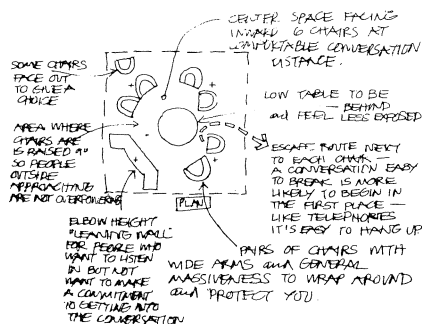 CENTER SPACE FACING
INWARD 6 CHAIRS AT
COMFORTABLE CONVERSATION
DISTANCE.
SOME CHAIRS
FACE OUT
TO GIVE A
CHOICE
LOW TABLE TO BE
— BEHIND
and FEEL LESS EXPOSED
AREA WHERE
CHAIRS ARE
IS RAISED 9"
SO PEOPLE
OUTSIDE
APPROACHING
ARE NOT OVERPOWERING
ESCAPE ROUTE NEXT
TO EACH CHAIR —
A CONVERSATION EASY
TO BREAK IS MORE
LIKELY TO BEGIN IN
THE FIRST PLACE —
LIKE TELEPHONES
IT'S EASY TO HANG UP
PLAN
ELBOW HEIGHT
"LEANING WALL"
FOR PEOPLE WHO
WANT TO LISTEN
IN BUT NOT
WANT TO MAKE
A COMMITMENT
TO GETTING INTO
THE CONVERSATION
PAIRS OF CHAIRS WITH
WIDE ARMS and GENERAL
MASSIVENESS TO WRAP AROUND
and PROTECT YOU.